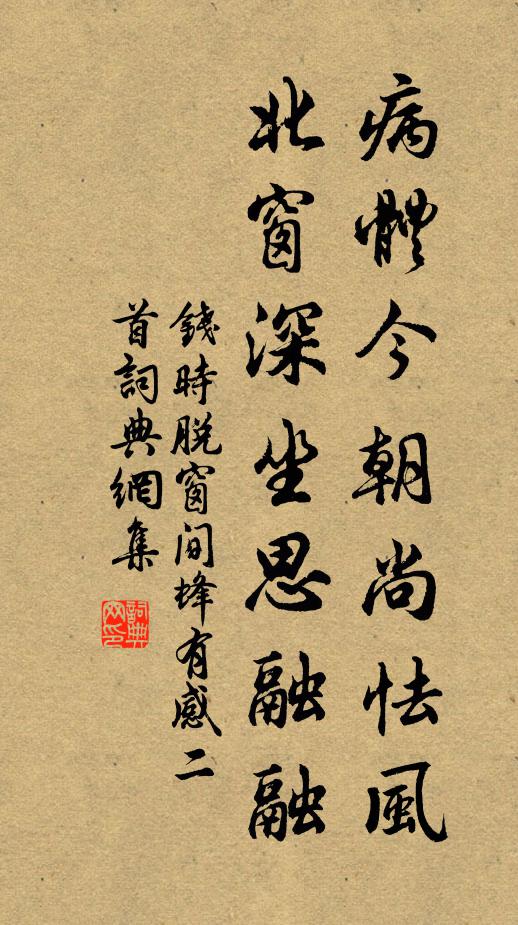 病體今朝尚怯風
北窗深坐思融融
錢時脫窗間蜂有感二
首詞典網集
詞典
网印